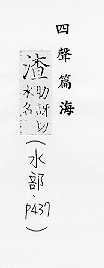 四聲篇海
渣助訝切水名(水部,p437)